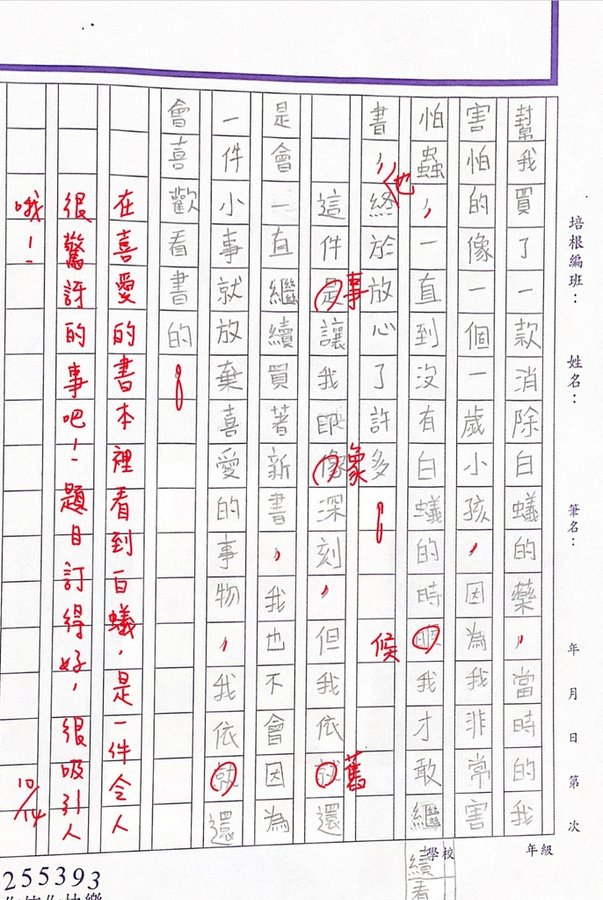 培根編班：
姓名：
筆名：
年 月 日 第 次
學校
年級
幫我買了一款消除白蟻的藥，當時的我
害怕的像一個一歲小孩，因為我非常害
怕蟲，一直到沒有白蟻的時我才敢繼續看
候
書，終於放心了許多。
他
這件是讓我印像深刻，但我依故還
事
象
舊
是會一直繼續買著新書，我也不會因為
一件小事就放棄喜愛的事物，我依就還
會喜歡看書的。
在喜愛的書本裡看到白蟻，是一件令人
很驚訝的事吧！題目訂得好，很吸引人
哦！
10/14
255393